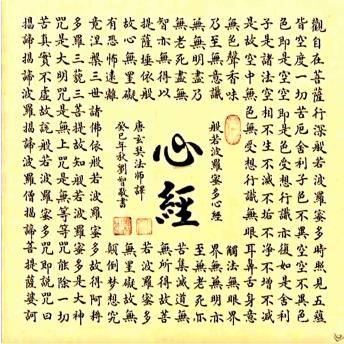 觀自在菩薩行深般若波羅蜜多時照見五蘊
皆空度一切苦厄舍利子色不異空空不異色
色即是空空即是色受想行識亦復如是舍利
子是諸法空相不生不滅不垢不淨不增不減
是故空中無色無受想行識無眼耳鼻舌身意
般若波羅蜜多心經
無色聲香味觸法無眼界
乃至無意識界無無明亦
無無明盡乃至無老死亦
無老死盡無苦集滅道無
智亦無得以無所得故菩
提薩埵依般若波羅蜜多
故心無罣礙無罣礙故無
有恐怖遠離顛倒夢想究
竟涅槃三世諸佛依般若波羅蜜多故得阿耨
多羅三藐三菩提故知般若波羅蜜多是大神
咒是大明咒是無上咒是無等等咒能除一切
苦真實不虛故說般若波羅蜜多咒即說咒曰
揭諦揭諦波羅揭諦波羅僧揭諦菩提薩婆訶
心經
唐玄奘法師譯
癸巳年秋劉智敬書